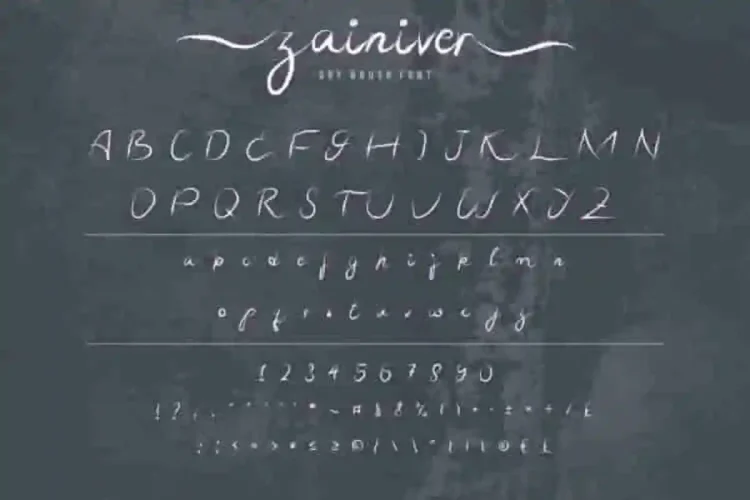 zainiver
DRY BRUSH FONT
A B C D E F G H I J K L M N
O P Q R S T U V W X Y Z
a b c d e f g h i j k l m n
o p q r s t u v w x y z
1 2 3 4 5 6 7 8 9 0